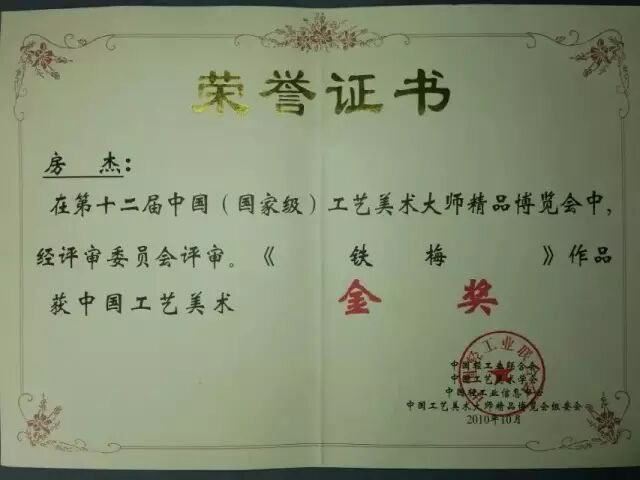 荣誉证书
房 杰：
在第十二届中国（国家级）工艺美术大师精品博览会中，
经评审委员会评审。《 铁 梅 》作品
获中国工艺美术 金 奖
中国轻工业联合会
中国工艺美术学会
中国轻工业信息中心
中国工艺美术大师精品博览会组委会
2010年10月